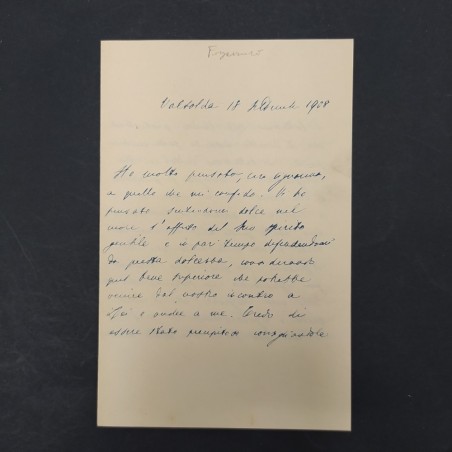 Valsolda 18 1908
Ho molto pensato, cara signorina,
a quello che mi confida. Vi ho
pensato dolce nel
cuore l'affetto del Suo spirito
gentile e in pari tempo difendendomi
da questa dolcezza,
quel bene superiore che potrebbe
venire dal nostro incontro a
Lei e anche a me. Credo di
essere stato consigliandole